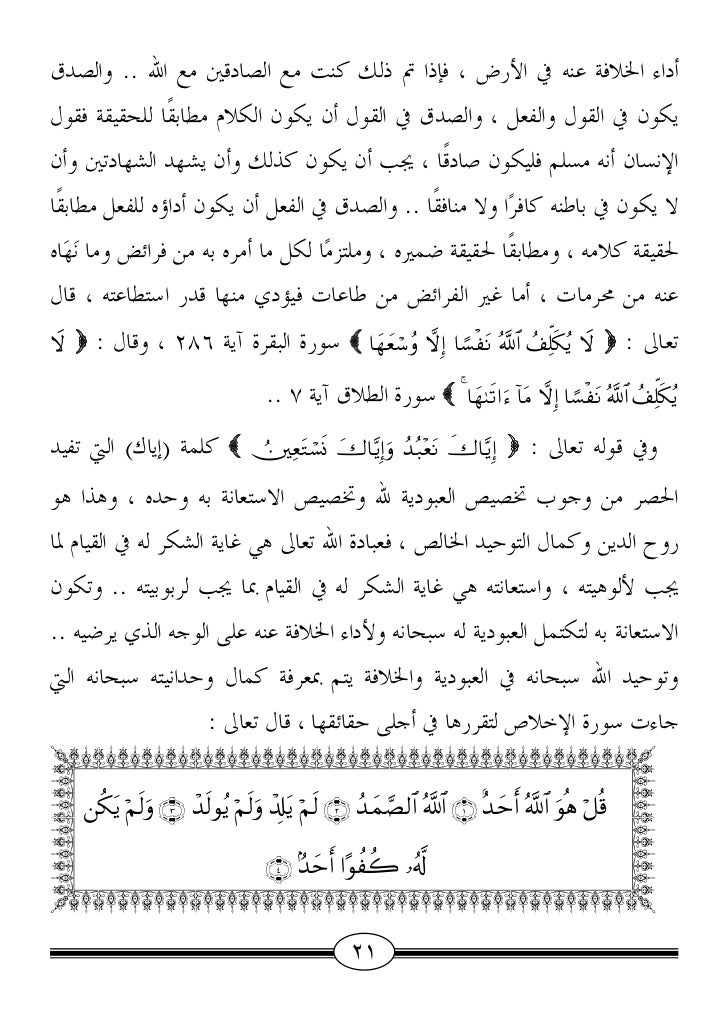 أداء الخلافة عنه في الأرض ، فإذا تم ذلك كنت مع الصادقين مع الله .. والصدق
يكون في القول والفعل ، والصدق في القول أن يكون الكلام مطابقًا للحقيقة فقول
الإنسان أنه مسلم فليكون صادقًا ، يجب أن يكون كذلك وأن يشهد الشهادتين وأن
لا يكون في باطنه كافرًا ولا منافقًا .. والصدق في الفعل أن يكون أداؤه للفعل مطابقًا
لحقيقة كلامه ، ومطابقًا لحقيقة ضميره ، وملتزمًا لكل ما أمره به من فرائض وما نَهَاه
عنه من محرمات ، أما غير الفرائض من طاعات فيؤدي منها قدر استطاعته ، قال
تعالى : ﴿ لَا يُكَلِّفُ ٱللَّهُ نَفْسًا إِلَّا وُسْعَهَا ﴾ سورة البقرة آية ٢٨٦ ، وقال : ﴿ لَا
يُكَلِّفُ ٱللَّهُ نَفْسًا إِلَّا مَآ ءَاتَىٰهَا ۚ ﴾ سورة الطلاق آية ٧ ..
وفي قوله تعالى : ﴿ إِيَّاكَ نَعْبُدُ وَإِيَّاكَ نَسْتَعِينُ ﴾ كلمة (إياك) التي تفيد
الحصر من وجوب تخصيص العبودية لله وتخصيص الاستعانة به وحده ، وهذا هو
روح الدين وكمال التوحيد الخالص ، فعبادة الله تعالى هي غاية الشكر له في القيام لما
يجب لألوهيته ، واستعانته هي غاية الشكر له في القيام بما يجب لربوبيته .. وتكون
الاستعانة به لتكتمل العبودية له سبحانه ولأداء الخلافة عنه على الوجه الذي يرضيه ..
وتوحيد الله سبحانه في العبودية والخلافة يتم بمعرفة كمال وحدانيته سبحانه التي
جاءت سورة الإخلاص لتقررها في أجلى حقائقها ، قال تعالى :
قُلْ هُوَ ٱللَّهُ أَحَدٌ ١ ٱللَّهُ ٱلصَّمَدُ ٢ لَمْ يَلِدْ وَلَمْ يُولَدْ ٣ وَلَمْ يَكُن
لَّهُۥ كُفُوًا أَحَدٌۢ ٤
٢١